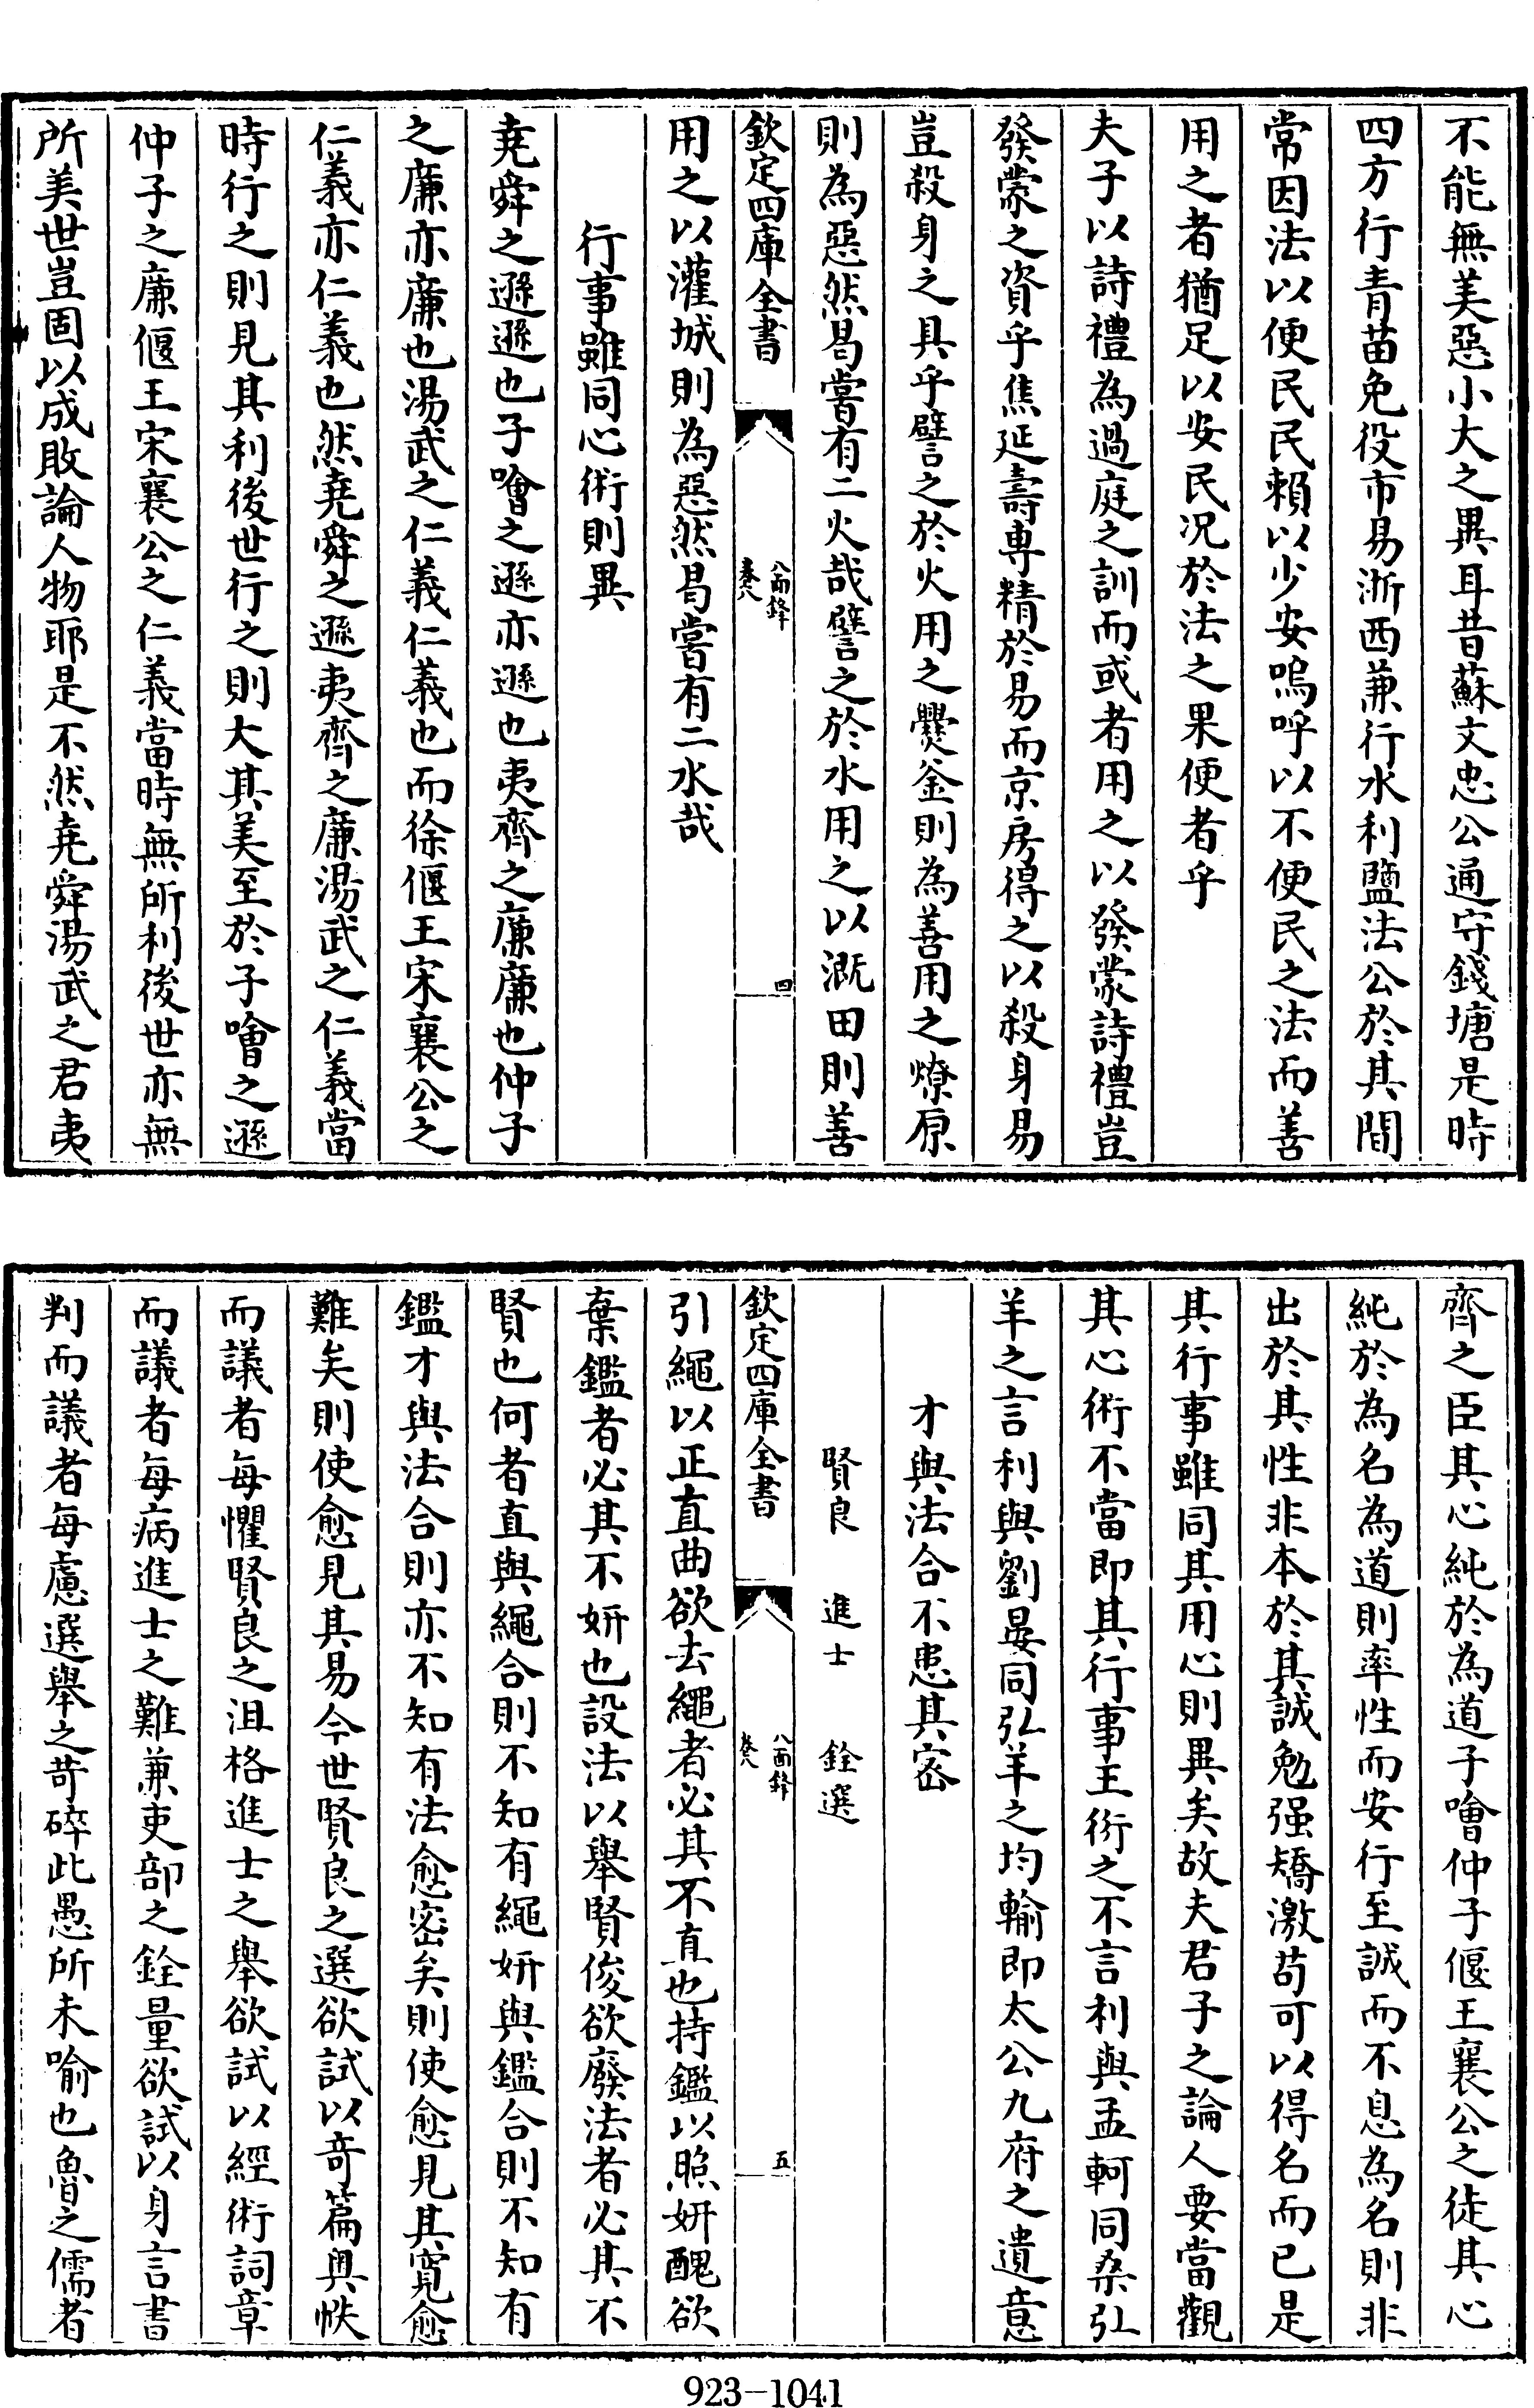 不能無美惡小大之異耳昔蘇文忠公通守錢塘是時
四方行青苗免役市易浙西兼行水利鹽法公於其間
常因法以便民民賴以少安嗚呼以不便民之法而善
用之者猶足以安民况於法之果便者乎
夫子以詩禮為過庭之訓而或者用之以發蒙詩禮豈
發蒙之資乎焦延壽專精於易而京房得之以殺身易
豈殺身之具乎譬之於火用之爨釜則為善用之燎原
則為惡然曷嘗有二火哉譬之於水用之以溉田則善
欽定四庫全書
八面鋒
卷八
四
用之以灌城則為惡然曷嘗有二水哉
行事雖同心術則異
堯舜之遜遜也子噲之遜亦遜也夷齊之廉廉也仲子
之廉亦廉也湯武之仁義仁義也而徐偃王宋襄公之
仁義亦仁義也然堯舜之遜夷齊之廉湯武之仁義當
時行之則見其利後世行之則大其美至於子噲之遜
仲子之廉偃王宋襄公之仁義當時無所利後世亦無
所美世豈固以成敗論人物耶是不然堯舜湯武之君夷
齊之臣其心純於為道子噲仲子偃王襄公之徒其心
純於為名為道則率性而安行至誠而不息為名則非
出於其性非本於其誠勉强矯激苟可以得名而已是
其行事雖同其用心則異矣故夫君子之論人要當觀
其心術不當即其行事王衍之不言利與孟軻同桑弘
羊之言利與劉晏同弘羊之均輸即太公九府之遺意
才與法合不患其密
賢良 進士 銓選
欽定四庫全書
八面鋒
卷八
五
引繩以正直曲欲去繩者必其不直也持鑑以照妍醜欲
棄鑑者必其不妍也設法以舉賢俊欲廢法者必其不
賢也何者直與繩合則不知有繩妍與鑑合則不知有
鑑才與法合則亦不知有法愈密矣則使愈見其寬愈
難矣則使愈見其易今世賢良之選欲試以奇篇奥帙
而議者每懼賢良之沮格進士之舉欲試以經術詞章
而議者每病進士之難兼吏部之銓量欲試以身言書
判而議者每慮選舉之苛碎此愚所未喻也魯之儒者
923-1041